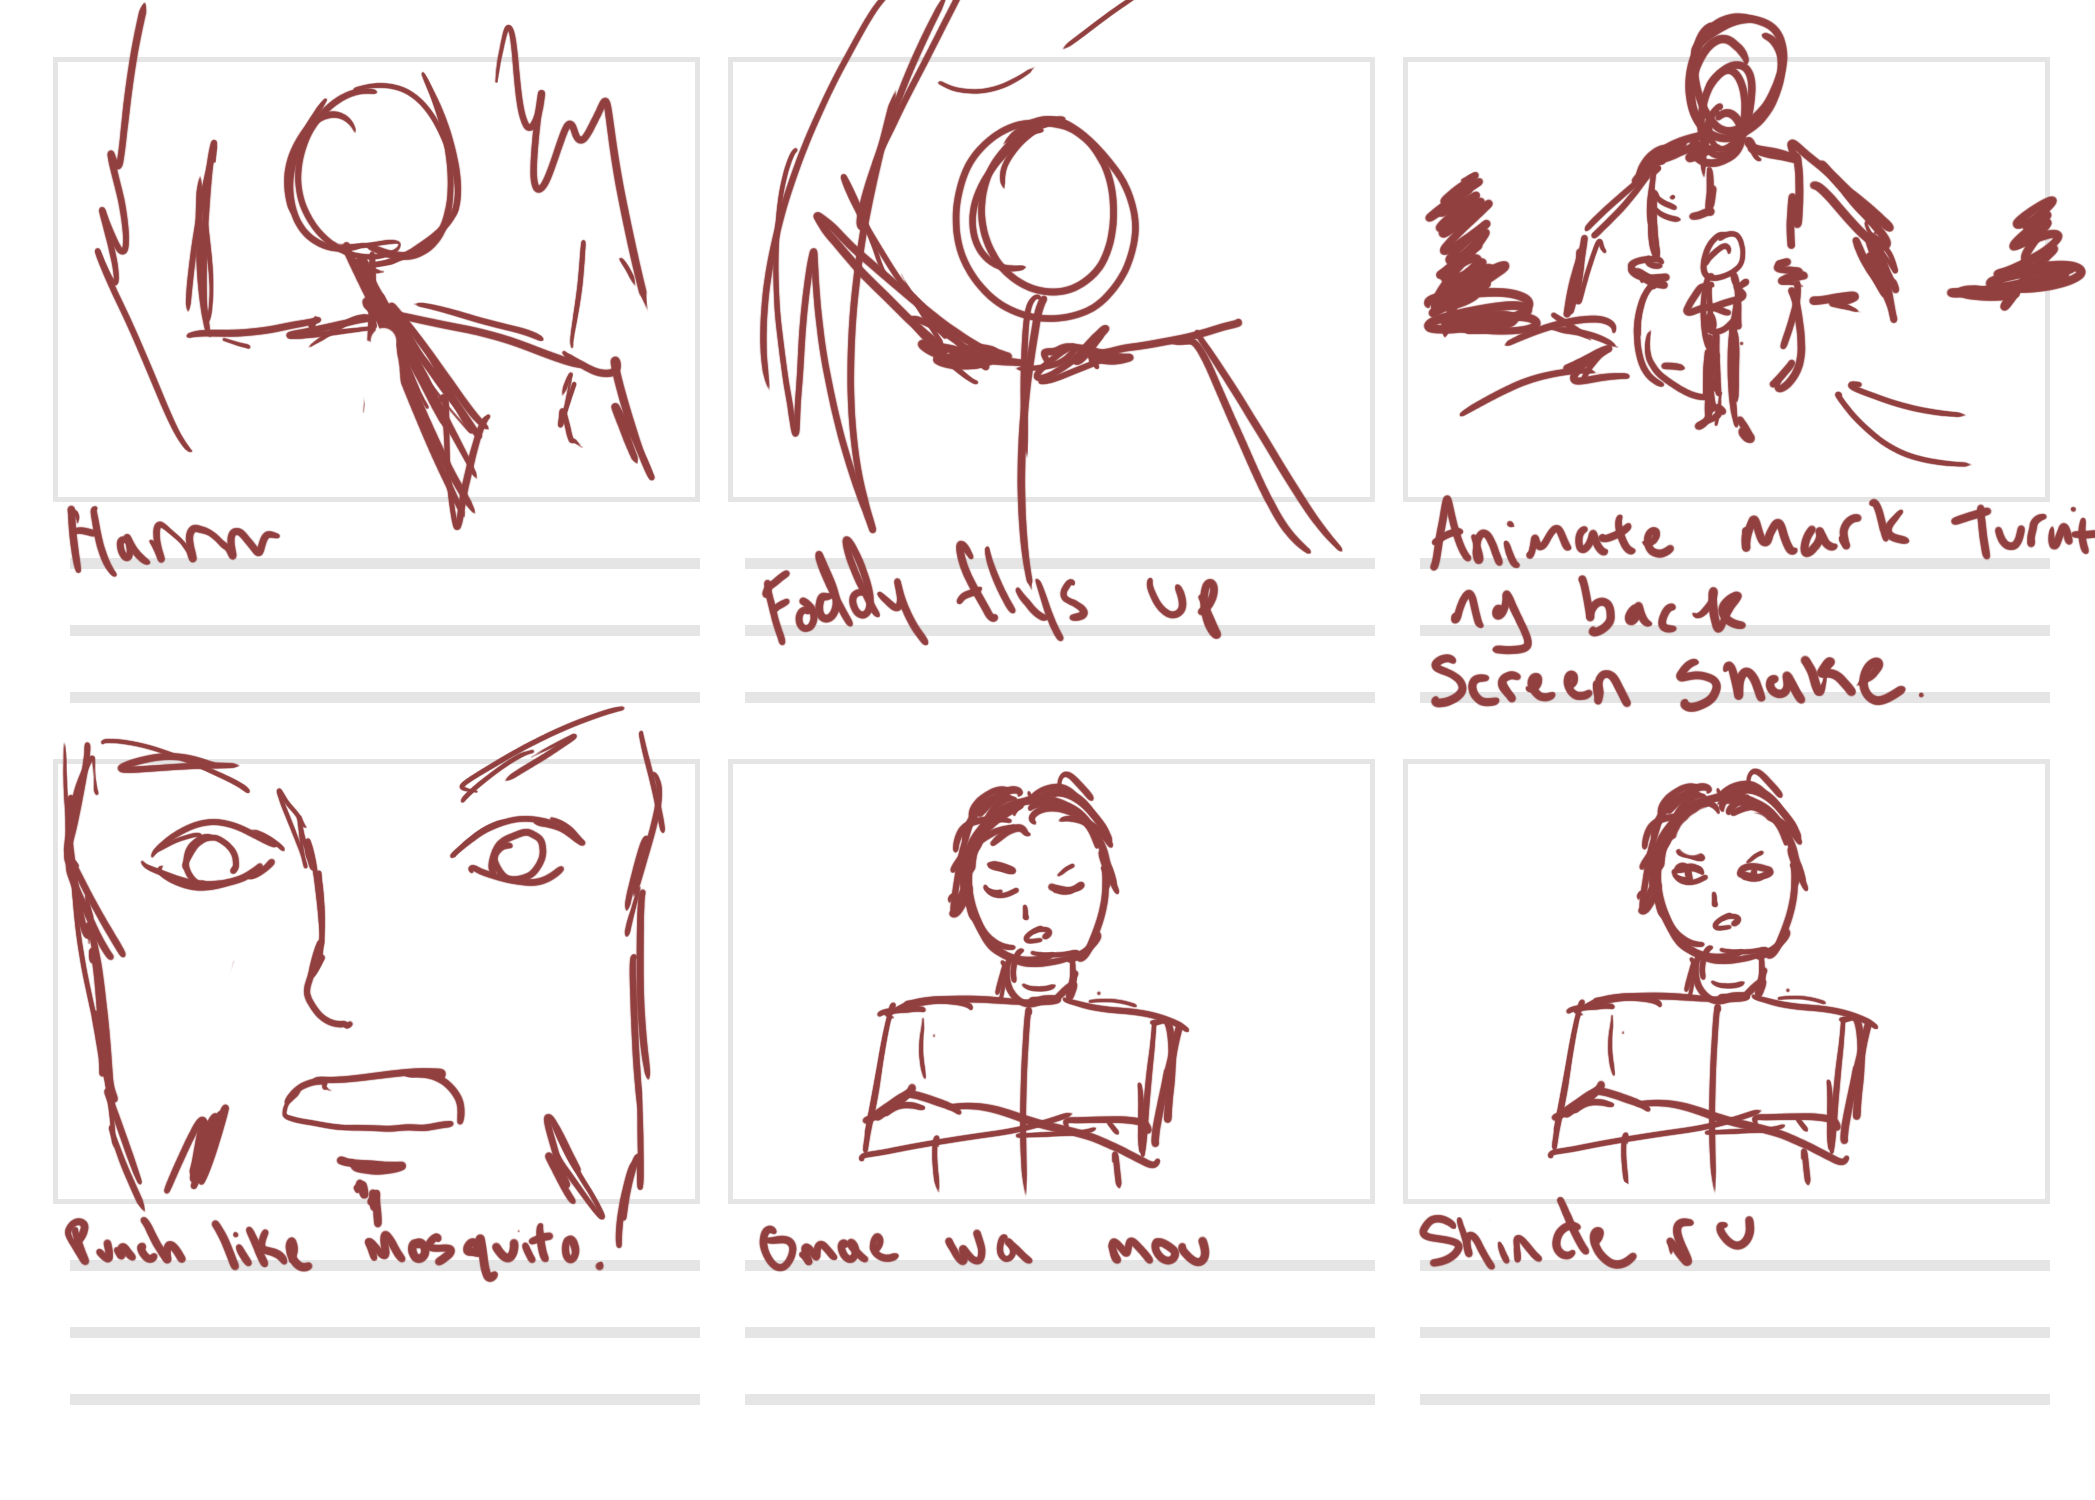 Hammr
Faddy flys up
Animate mark Turnit
ny back
Screen shake.
Punch like mosquito.
Omae wa mou
Shinde ru